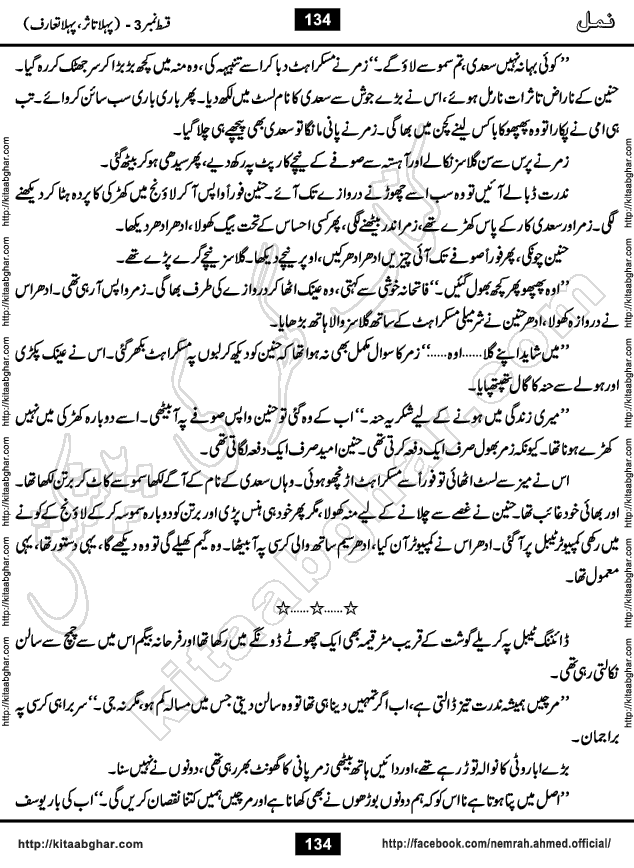 نمل
134
قسط نمبر 3 - (پہلا تاثر، پہلا تعارف)
’’کوئی بہانہ نہیں سعدی، تم سموسے لاؤ گے۔‘‘ زمر نے مسکراہٹ دبا کر اسے تنبیہہ کی، وہ منہ میں کچھ بڑبڑا کر سر جھٹک کر رہ گیا۔
حنین کے ناراض تاثرات نارمل ہوئے، اس نے بڑے جوش سے سعدی کا نام لسٹ میں لکھ دیا۔ پھر باری باری سب سائن کروائے۔ تب
ہی امی نے پکارا تو وہ پھپھو کا باکس لینے کچن میں بھاگی۔ زمر نے پانی مانگا تو سعدی بھی پیچھے ہی چلا گیا۔
زمر نے پرس سے سن گلاسز نکالے اور آہستہ سے صوفے کے نیچے کارپٹ پہ رکھ دیے، پھر سیدھی ہو کر بیٹھ گئی۔
ندرت ڈبا لے آئیں تو وہ سب اسے چھوڑنے دروازے تک آئے۔ حنین فوراً واپس آ کر لاؤنج میں کھڑکی کا پردہ ہٹا کر دیکھنے
لگی۔ زمر اور سعدی کار کے پاس کھڑے تھے، زمر اندر بیٹھنے لگی، پھر کسی احساس کے تحت بیگ کھولا، ادھر ادھر دیکھا۔
حنین چونکی، پھر فوراً صوفے تک آئی چیزیں ادھر ادھر کیں، اوپر نیچے دیکھا۔ گلاسز نیچے گرے پڑے تھے۔
’’اوہ پھپھو پھر کچھ بھول گئیں۔‘‘ فاتحانہ خوشی سے کہتی، وہ عینک اٹھا کر دروازے کی طرف بھاگی۔ زمر واپس آ رہی تھی۔ ادھر اس
نے دروازہ کھولا، ادھر حنین نے شرمیلی مسکراہٹ کے ساتھ گلاسز والا ہاتھ بڑھایا۔
’’میں شاید اپنے گلا......اوہ......‘‘ زمر کا سوال مکمل بھی نہ ہوا تھا کہ حنین کو دیکھ کر لبوں پہ مسکراہٹ بکھر گئی۔ اس نے عینک پکڑی
اور ہولے سے حنہ کا گال تھپتھپایا۔
’’میری زندگی میں ہونے کے لیے شکریہ حنہ۔‘‘ اب کے وہ گئی تو حنین واپس صوفے پہ آ بیٹھی۔ اسے دوبارہ کھڑکی میں نہیں
کھڑے ہونا تھا۔ کیونکہ زمر بھول صرف ایک دفعہ کرتی تھی۔ حنین امید صرف ایک دفعہ لگاتی تھی۔
اس نے میز سے لسٹ اٹھائی تو فوراً سے مسکراہٹ اڑنچھو ہوئی۔ وہاں سعدی کے نام کے آگے لکھا سموسے کاٹ کر برتن لکھا تھا۔
اور بھائی خود غائب تھا۔ حنین نے غصے سے چلانے کے لیے منہ کھولا، مگر پھر خود ہی ہنس پڑی اور برتن کو دوبارہ سموسہ کر کے لاؤنج کے کونے
میں رکھی کمپیوٹر ٹیبل پر آ گئی۔ ادھر اس نے کمپیوٹر آن کیا، ادھر سیم ساتھ والی کرسی پہ آ بیٹھا۔ وہ گیم کھیلے گی تو وہ دیکھے گا، یہی دستور تھا، یہی
معمول تھا۔
☆......☆......☆
ڈائننگ ٹیبل پہ کریلے گوشت کے قریب مٹر قیمہ بھی ایک چھوٹے ڈونگے میں رکھا تھا اور فرحانہ بیگم اس میں سے چمچ سے سالن
نکالتی رہی تھی۔
’’مرچیں ہمیشہ ندرت تیز ڈالتی ہے، اب اگر تمہیں دینا ہی تھا تو وہ سالن دیتی جس میں مسالہ کم ہو، مگر نہ جی۔‘‘ سربراہی کرسی پہ
براجمان۔
بڑے ابا روٹی کا نوالہ توڑ رہے تھے، اور دائیں ہاتھ بیٹھی زمر پانی کا گھونٹ بھر رہی تھی، دونوں نے نہیں سنا۔
’’اصل میں پتا ہوتا ہے نا اس کو کہ ہم دونوں بوڑھوں نے بھی کھانا ہے اور مرچیں ہمیں کتنا نقصان کریں گی۔‘‘ اب کی بار یوسف
http://kitaabghar.com
134
http://facebook.com/nemrah.ahmed.official/
http://kitaabghar.com http://kitaabghar.com http://kitaabghar.com http://kitaabghar.com http://kitaabghar.com http://kitaabghar.com
http://kitaabghar.com http://kitaabghar.com http://kitaabghar.com http://kitaabghar.com http://kitaabghar.com http://kitaabghar.com
کتاب گھر کی پیشکش
kitaabghar.com